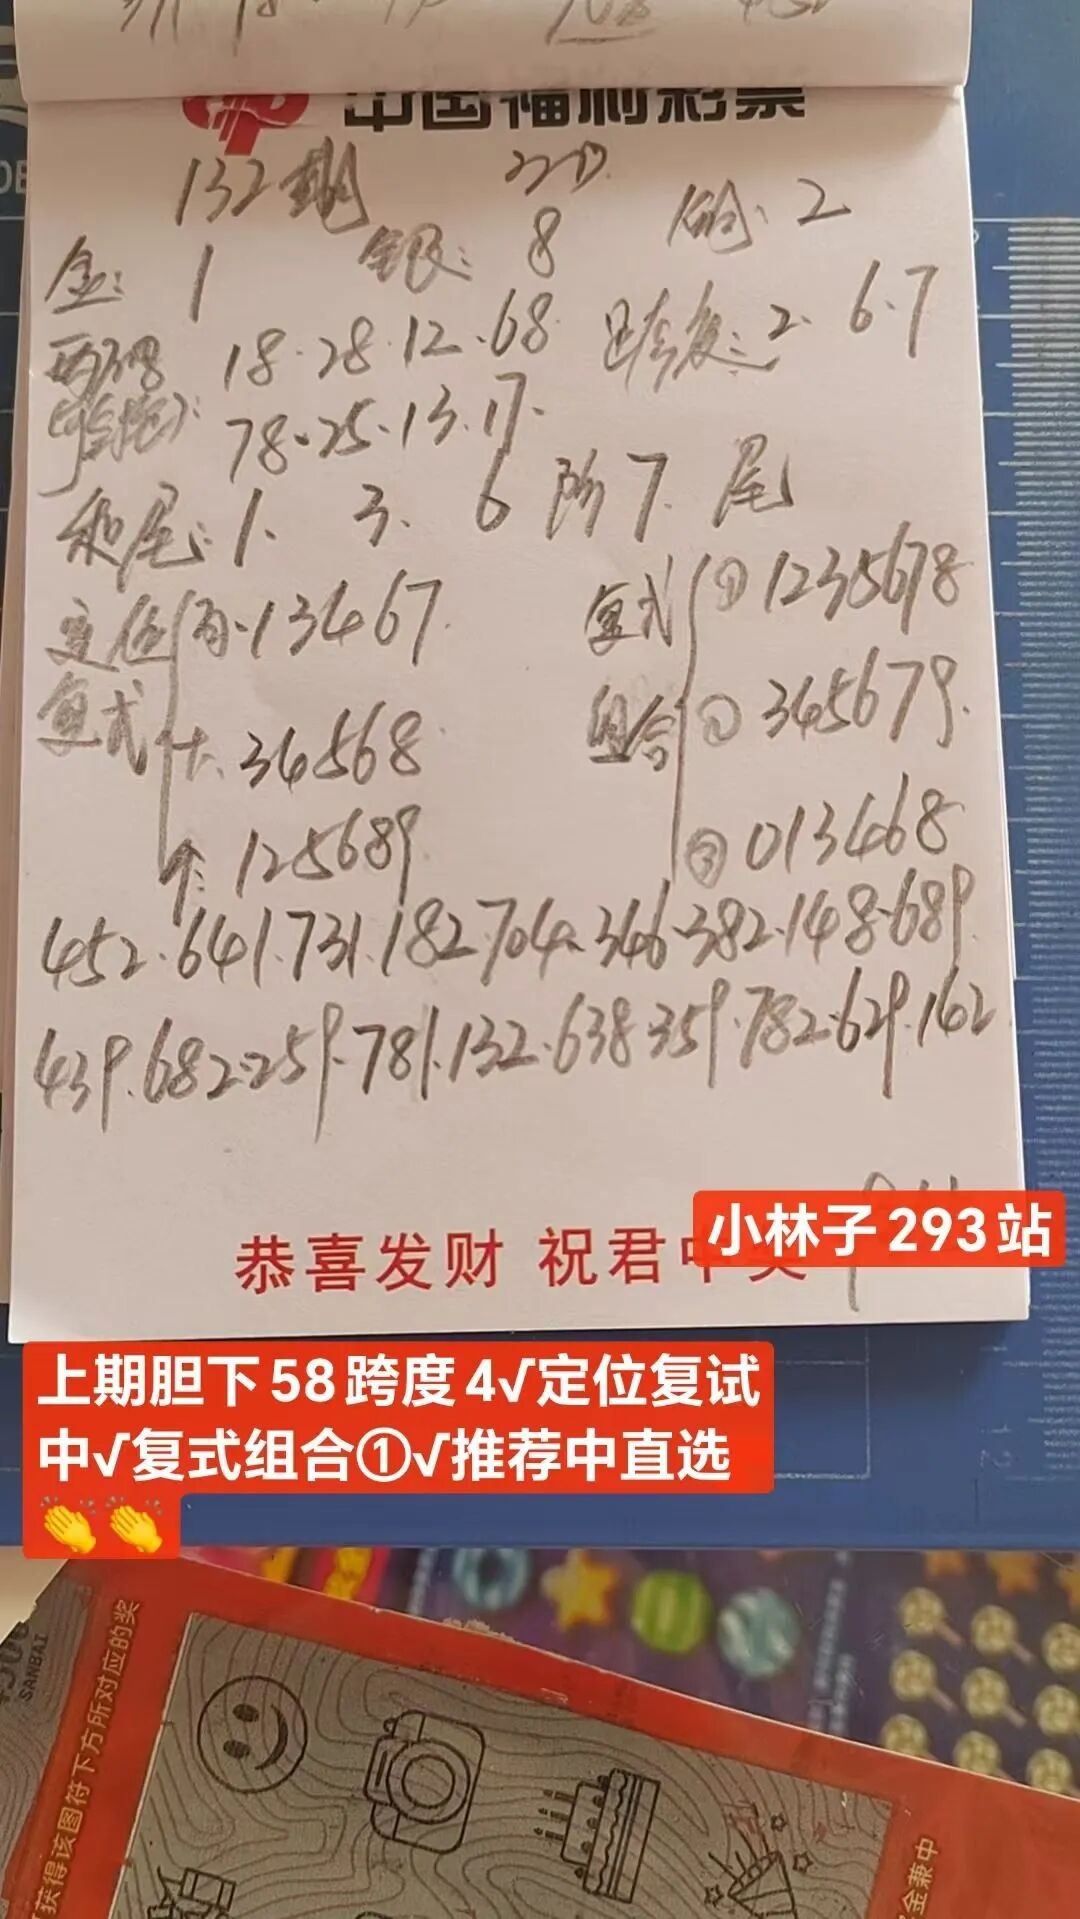 中国福利彩票
132期
金: 1 银: 8 铜: 2
两码 18·28·12·68 跨度: 2· 6·7
78·25·13·17·
和尾: 1、 3、 6 防 7 尾
定位 百·13467· 复式 ①1235678
复式 十·34568· 组合 ②345679·
个: 125689· ③013468
452·641·731·182·704·346·382·148·689·
439·682·259·781·132·638·359·782·629·162
小林子293站
恭喜发财 祝君中奖
上期胆下58跨度4√定位复试
中√复式组合①√推荐中直选
👏👏
SANBAI
可获得该图符下方所对应的奖
金兼中